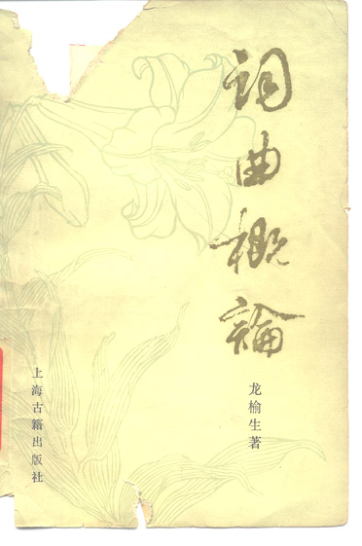 词曲概論
龙榆生著
上海古籍出版社